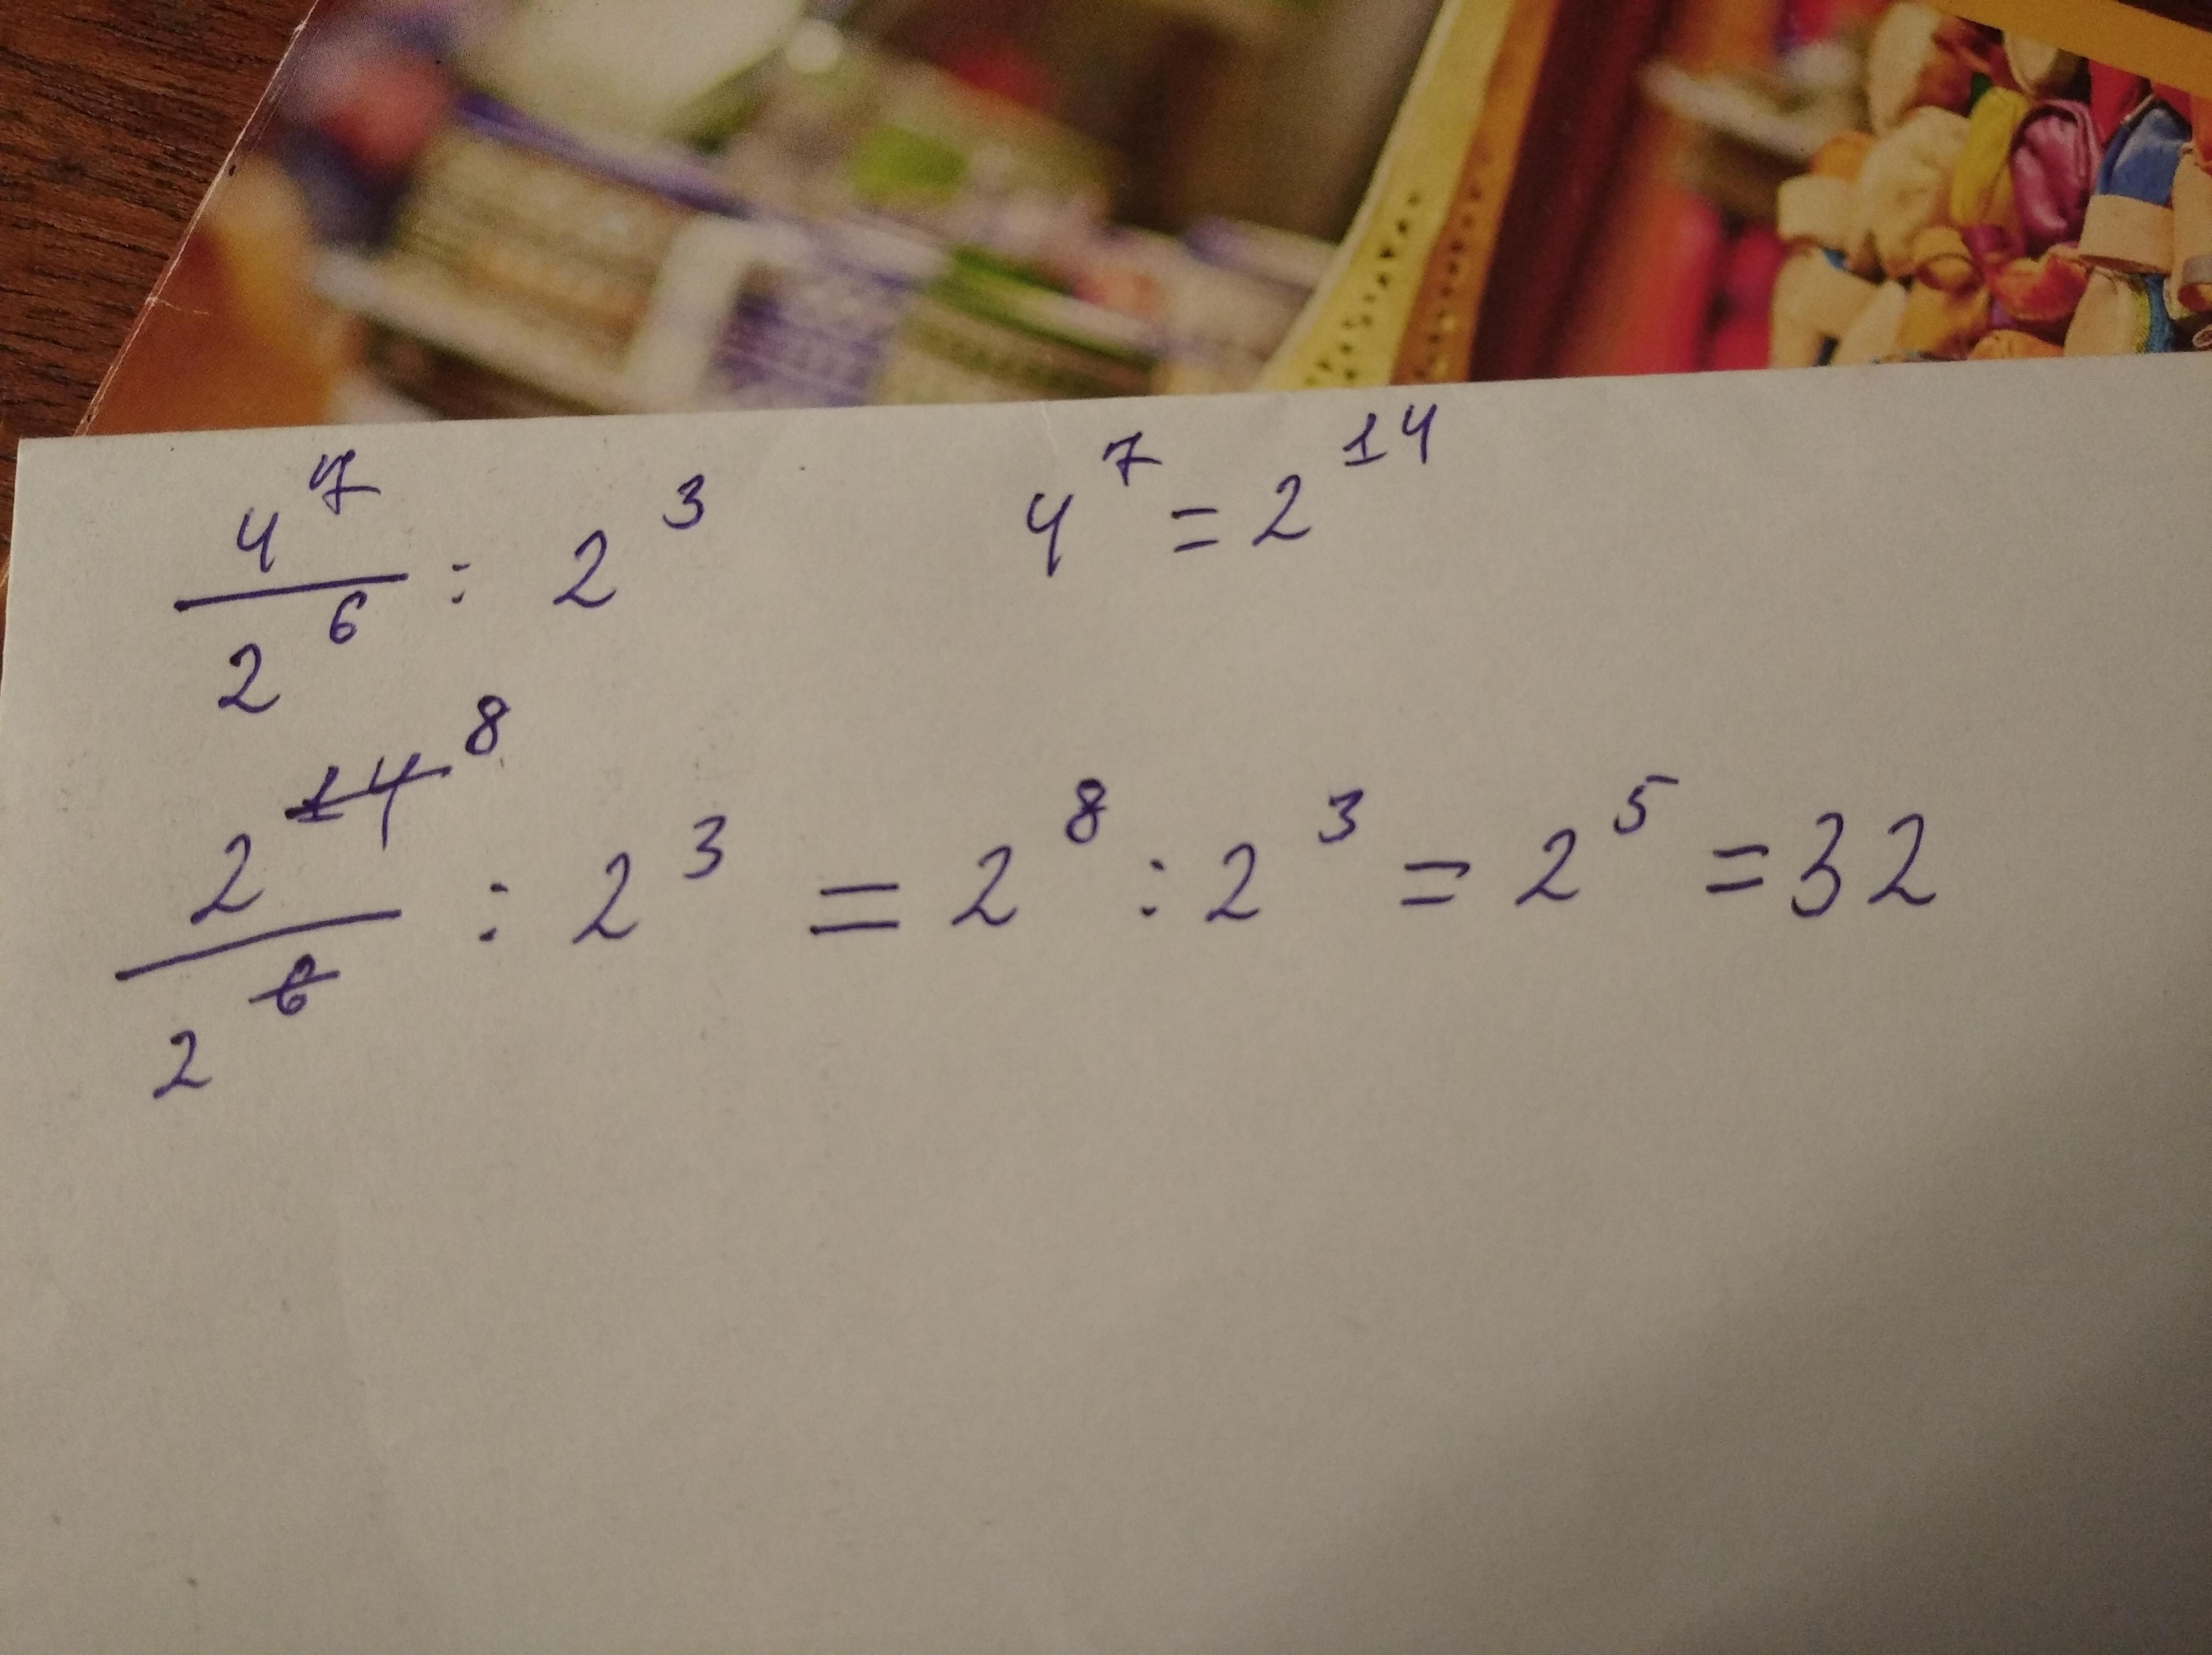 4^7/2^6 : 2^3    4^7 = 2^14
2^14 8/2^6 : 2^3 = 2^8 : 2^3 = 2^5 = 32